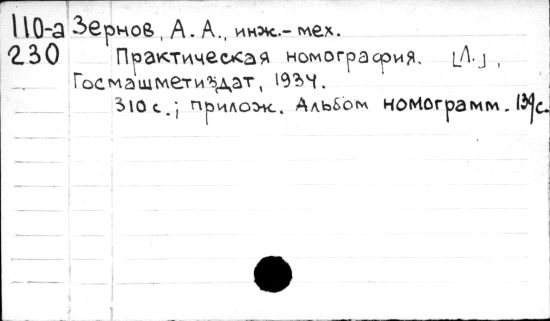 110-а Зернов, А. А., инж.-мех.
230 Практическая номография. [Л.],
Госмашметиздат, 1934.
310 с.; прилож. Альбом номограмм. 139 с.